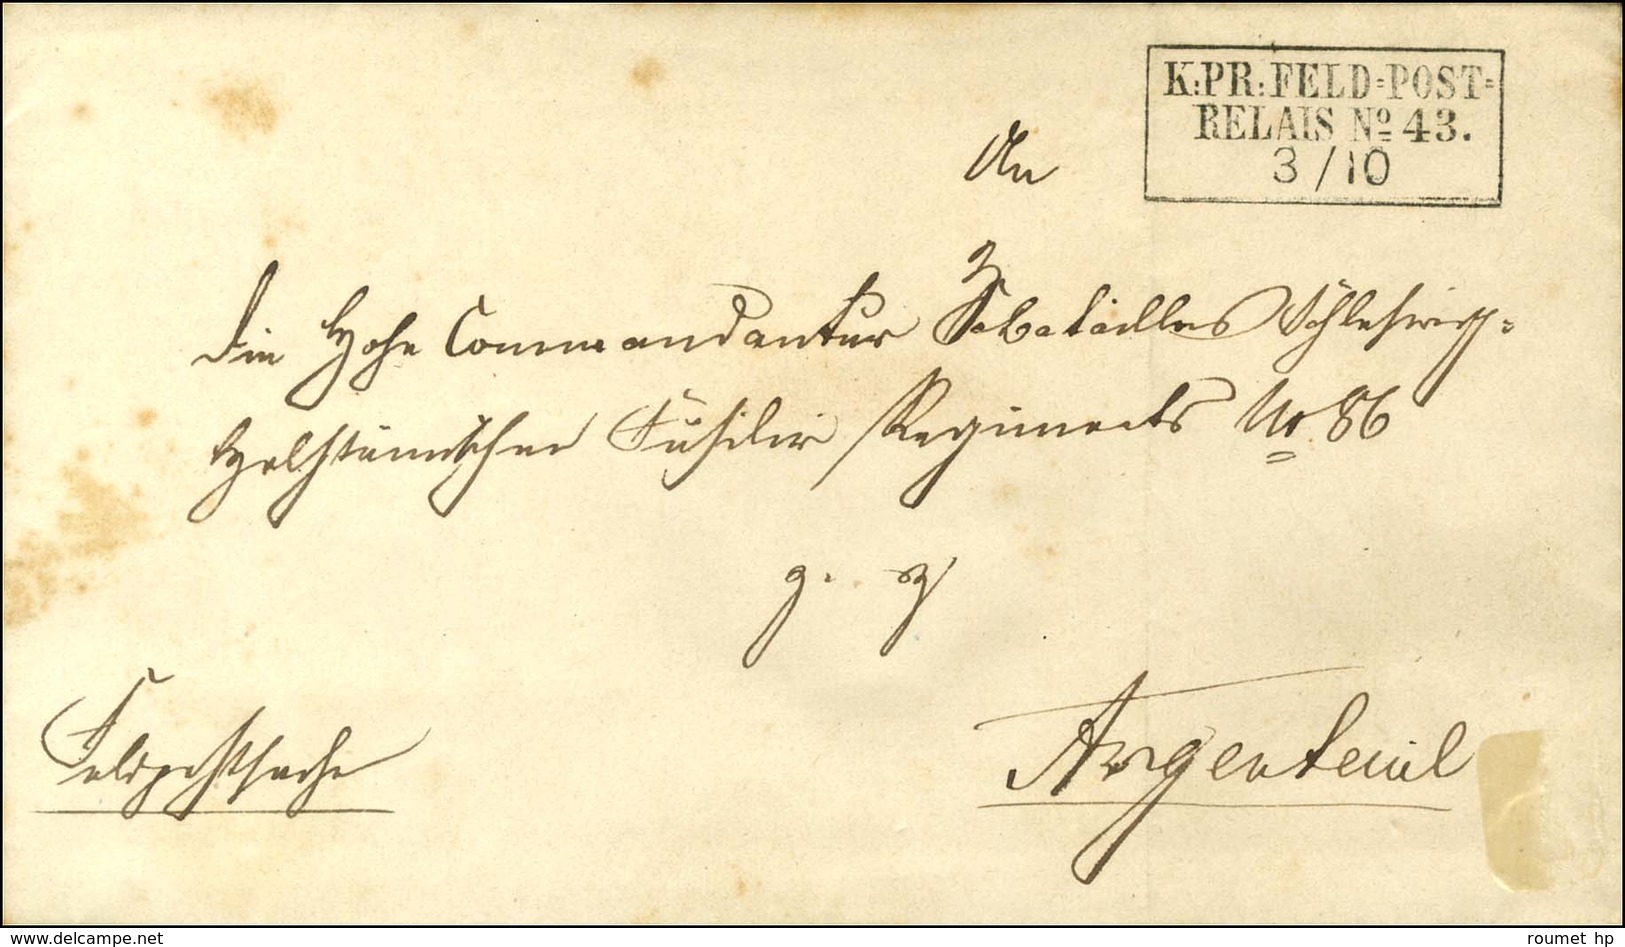 K:PR:FELD=POST=
RELAIS Nº 43.
3/10
An
die Hohe Commandantur Schleswig-
Holsteinischen Füsilir Regiments No 86
Feldpostsache
Argenteuil
www.delcampe.net
roumet hp